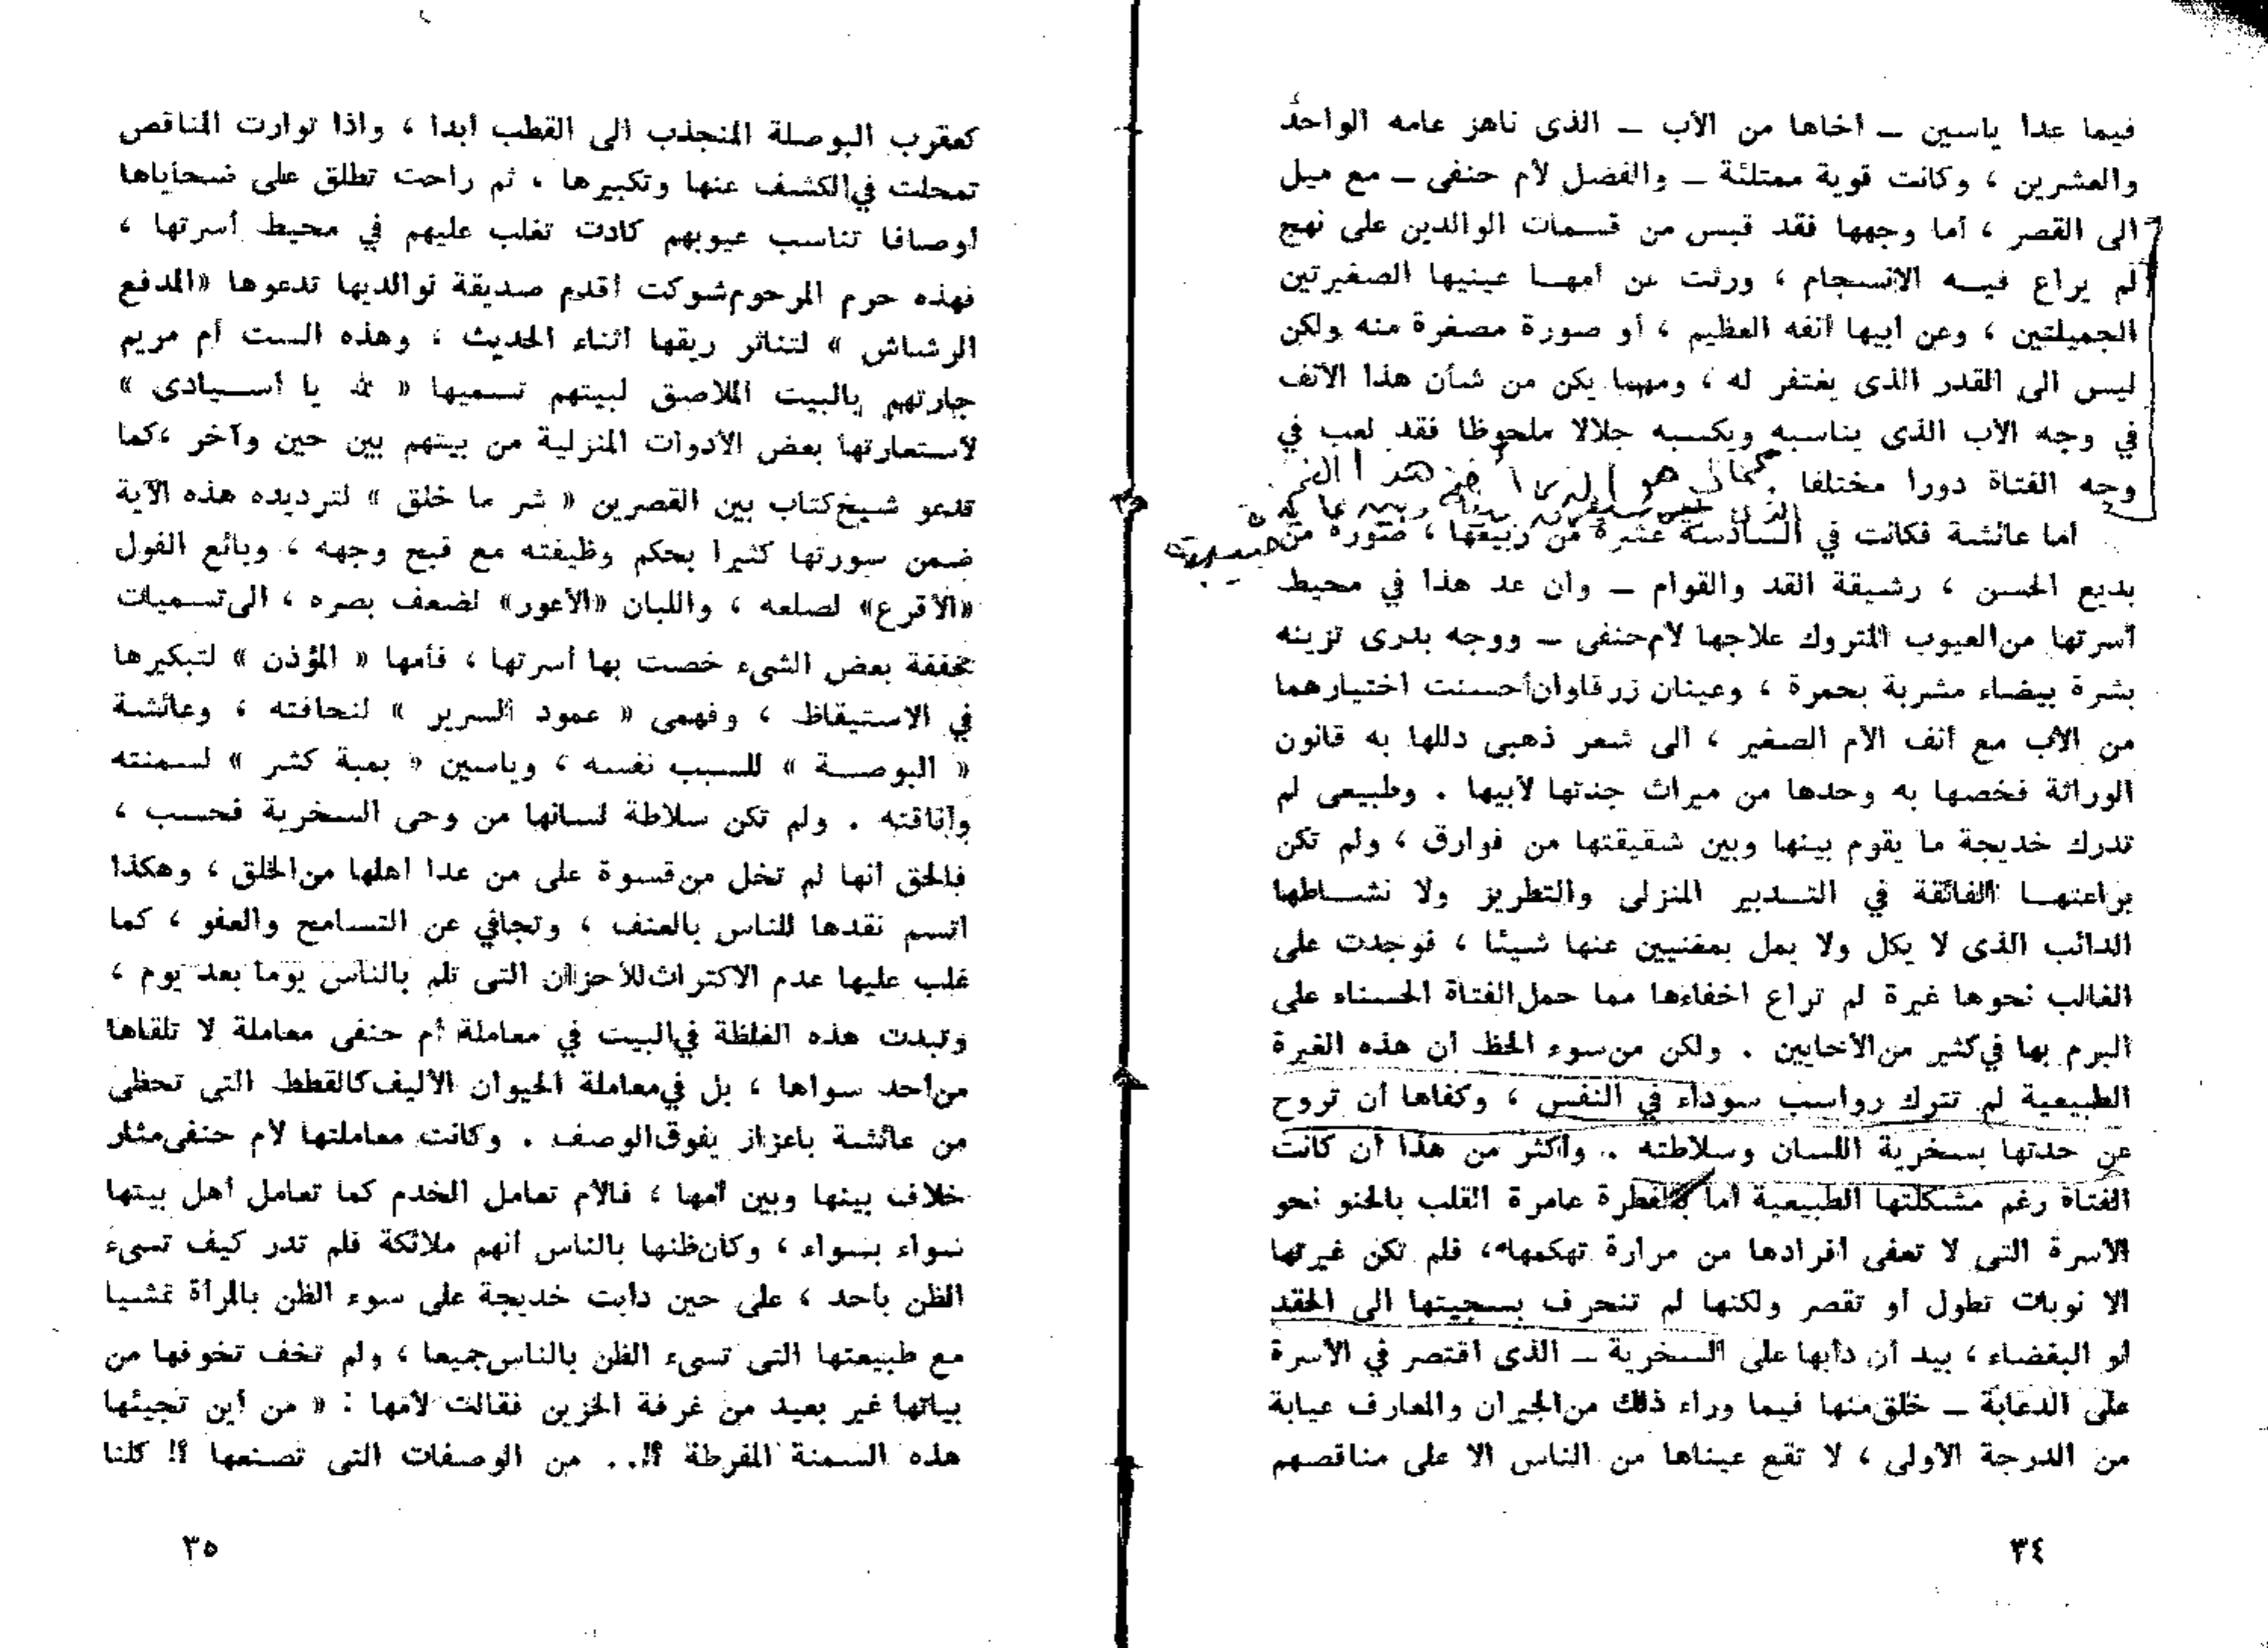 فيما عدا ياسين ــ أخاها من الأب ــ الذى ناهز عامه الواحد
والعشرين ، وكانت قوية ممتلئة ــ والفضل لأم حنفى ــ مع ميل
الى القصر ، أما وجهها فقد قبس من قسمات الوالدين على نهج
لم يراع فيه الانسجام ، ورثت عن أمها عينيها الصغيرتين
الجميلتين ، وعن أبيها أنفه العظيم ، أو صورة مصغرة منه ولكن
ليس الى القدر الذى يغتفر له ، ومهما يكن من شأن هذا الأنف
في وجه الأب الذى يناسبه ويكسبه جلالا ملحوظا فقد لعب في
وجه الفتاة دورا مختلفا .
أما عائشة فكانت في السادسة عشرة من ربيعها ، صورة من
بديع الحسن ، رشيقة القد والقوام ــ وان عد هذا في محيط
أسرتها من العيوب المتروك علاجها لأم حنفى ــ ووجه بدرى تزينه
بشرة بيضاء مشربة بحمرة ، وعينان زرقاوان أحسنت اختيارهما
من الأب مع أنف الأم الصغير ، الى شعر ذهبى دللها به قانون
الوراثة فخصها به وحدها من ميراث جدتها لأبيها . وطبيعى لم
تدرك خديجة ما يقوم بينها وبين شقيقتها من فوارق ، ولم تكن
براعتها الفائقة في التدبير المنزلى والتطريز ولا نشاطها
الدائب الذى لا يكل ولا يمل بمغنيين عنها شيئا ، فوجدت على
الغالب نحوها غيرة لم تراع اخفاءها مما حمل الفتاة الحسناء على
البرم بها في كثير من الأحايين . ولكن من سوء الحظ أن هذه الغيرة
الطبيعية لم تترك رواسب سوداء في النفس ، وكفاها أن تروح
عن حدتها بسخرية اللسان وسلاطته . وأكثر من هذا أن كانت
الفتاة رغم مشكلتها الطبيعية أما بالفطرة عامرة القلب بالحنو نحو
الأسرة التى لا تعفى أفرادها من مرارة تهكمها ، فلم تكن غيرتها
الا نوبات تطول أو تقصر ولكنها لم تنحرف بسجيتها الى الحقد
أو البغضاء ، بيد أن دأبها على السخرية ــ الذى اقتصر في الأسرة
على الدعابة ــ خلق منها فيما وراء ذلك من الجيران والمعارف عيابة
من الدرجة الأولى ، لا تقع عيناها من الناس الا على مناقصهم
٣٤
كعقرب البوصلة المنجذب الى القطب أبدا ، واذا توارت المناقص
تمحلت في الكشف عنها وتكبيرها ، ثم راحت تطلق على ضحاياها
أوصافا تناسب عيوبهم كادت تغلب عليهم في محيط أسرتها ،
فهذه حرم المرحوم شوكت أقدم صديقة لوالديها تدعوها «المدفع
الرشاش » لتناثر ريقها اثناء الحديث ، وهذه الست أم مريم
جارتهم بالبيت الملاصق لبيتهم تسميها « لله يا أسيادى »
لاستعارتها بعض الأدوات المنزلية من بيتهم بين حين وآخر ،كما
تدعو شيخ كتاب بين القصرين « شر ما خلق » لترديده هذه الآية
ضمن سورتها كثيرا بحكم وظيفته مع قبح وجهه ، وبائع الفول
«الأقرع» لصلعه ، واللبان «الأعور» لضعف بصره ، الى تسميات
مخففة بعض الشىء خصت بها أسرتها ، فأمها « المؤذن » لتبكيرها
في الاستيقاظ ، وفهمى « عمود السرير » لنحافته ، وعائشة
« البوصة » للسبب نفسه ، وياسين « بمبة كشر » لسمنته
وأناقته . ولم تكن سلاطة لسانها من وحى السخرية فحسب ،
فالحق أنها لم تخل من قسوة على من عدا أهلها من الخلق ، وهكذا
اتسم نقدها للناس بالعنف ، وتجافي عن التسامح والعفو ، كما
غلب عليها عدم الاكتراث للأحزان التى تلم بالناس يوما بعد يوم ،
وتبدت هذه الغلظة في البيت في معاملة أم حنفى معاملة لا تلقاها
من أحد سواها ، بل في معاملة الحيوان الأليف كالقطط التى تحظى
من عائشة باعزاز يفوق الوصف . وكانت معاملتها لأم حنفى مثار
خلاف بينها وبين أمها ، فالأم تعامل الخدم كما تعامل أهل بيتها
سواء بسواء ، وكان ظنها بالناس أنهم ملائكة فلم تدر كيف تسىء
الظن بأحد ، على حين دأبت خديجة على سوء الظن بالمرأة تمشيا
مع طبيعتها التى تسىء الظن بالناس جميعا ، ولم تخف تخوفها من
بياتها غير بعيد من غرفة الخزين فقالت لأمها : « من أين تجيئها
هذه السمنة المفرطة ؟!.. من الوصفات التى تصنعها ؟! كلنا
٣٥